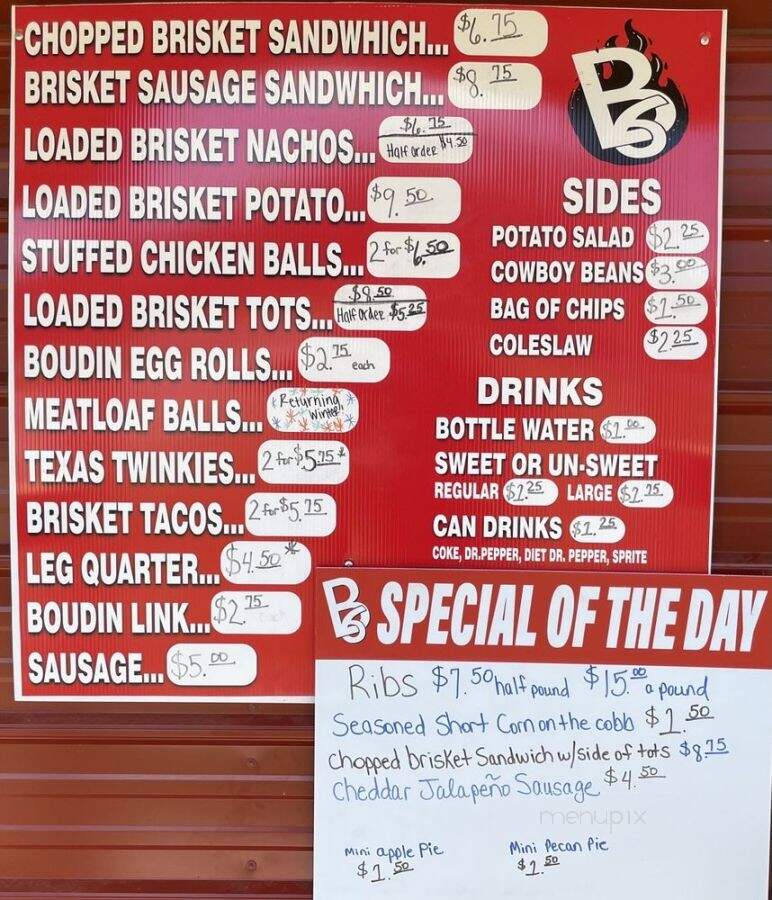 CHOPPED BRISKET SANDWHICH... $6.75
BRISKET SAUSAGE SANDWHICH... $8.75
LOADED BRISKET NACHOS... $6.75
Half order $4.50
LOADED BRISKET POTATO... $9.50
STUFFED CHICKEN BALLS... 2 for $6.50
LOADED BRISKET TOTS... $8.50
Half Order $5.25
BOUDIN EGG ROLLS... $2.75 each
MEATLOAF BALLS... Returning
Winter!
TEXAS TWINKIES... 2 for $5.75*
BRISKET TACOS... 2 for $5.75
LEG QUARTER... $4.50*
BOUDIN LINK... $2.75 each
SAUSAGE... $5.00
BS
SIDES
POTATO SALAD $2.25
COWBOY BEANS $3.00
BAG OF CHIPS $1.50
COLESLAW $2.25
DRINKS
BOTTLE WATER $1.00
SWEET OR UN-SWEET
REGULAR $1.25 LARGE $1.75
CAN DRINKS $1.25
COKE, DR.PEPPER, DIET DR. PEPPER, SPRITE
BS SPECIAL OF THE DAY
Ribs $7.50 half pound $15.00 a pound
Seasoned Short Corn on the cobb $1.50
Chopped brisket Sandwich w/side of tots $8.75
Cheddar Jalapeño Sausage $4.50
menupix
Mini apple Pie Mini Pecan Pie
$1.50 $1.50